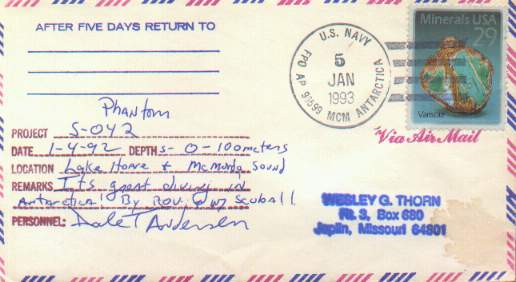 AFTER FIVE DAYS RETURN TO
U.S. NAVY
5
JAN
1993
FPO AP 96599 MCM ANTARCTICA
Minerals USA
29
Variscite
Via Air Mail
Phantom
PROJECT S-042
DATE 1-4-92 DEPTHS- 0-100meters
LOCATION Lake Hoare & McMurdo Sound
REMARKS Its great diving in
Antarctica! By ROV & w/ Scuba!!
PERSONNEL: Dale T Andersen
WESLEY G. THORN
Rt. 3, Box 680
Joplin, Missouri 64801